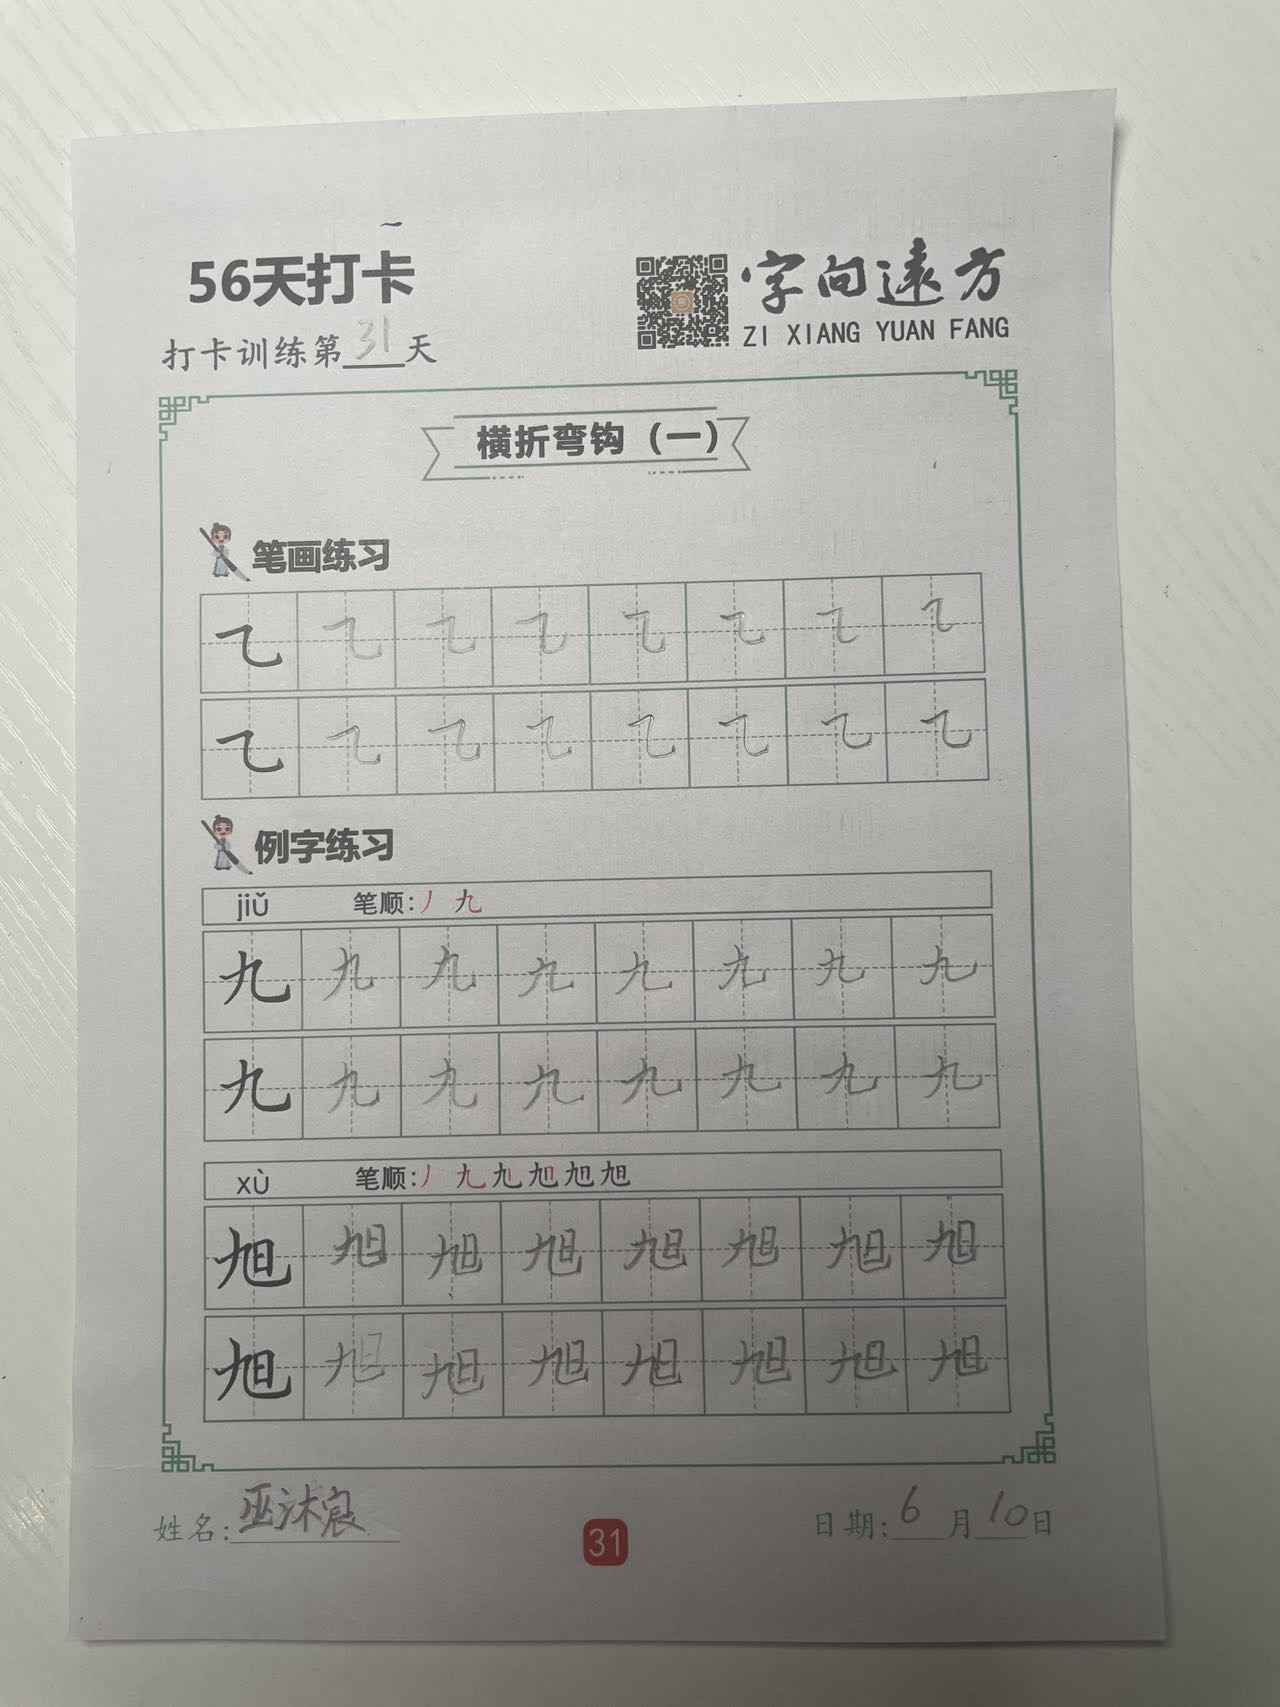 56天打卡
字向遠方
ZI XIANG YUAN FANG
打卡训练第31天
横折弯钩（一）
笔画练习
㇈ ㇈ ㇈ ㇈ ㇈ ㇈ ㇈ ㇈
㇈ ㇈ ㇈ ㇈ ㇈ ㇈ ㇈ ㇈
例字练习
jiǔ 笔顺:丿 九
九 九 九 九 九 九 九 九
九 九 九 九 九 九 九 九
xù 笔顺:丿 九 旭 旭 旭 旭
旭 旭 旭 旭 旭 旭 旭 旭
旭 旭 旭 旭 旭 旭 旭 旭
姓名:巫沐宸
31
日期:6月10日